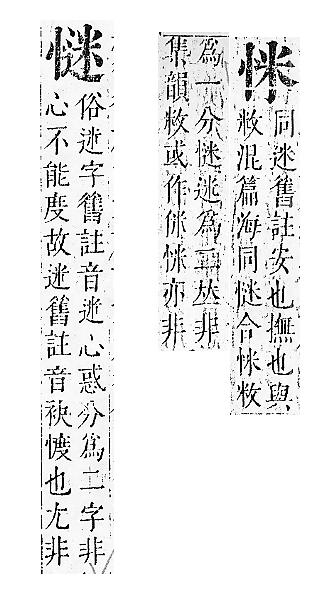 ⿰忄米
同迷舊註安也撫也與
敉混篇海同⿰忄迷合⿰忄米敉
為一分⿰忄迷迷為二𠀤非
集韻敉或作侎⿰忄米亦非
⿰忄迷
俗迷字舊註音迷心惑分為二字非
心不能度故迷舊註音袂也尤非